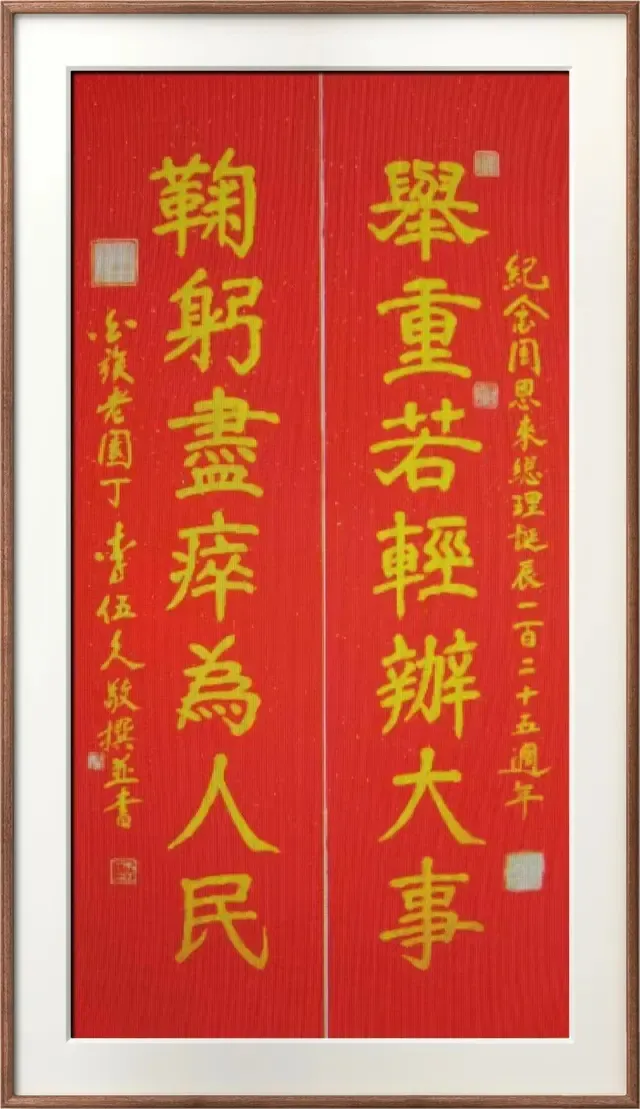 紀念周恩來總理誕辰一百二十五週年
舉重若輕辦大事
鞠躬盡瘁為人民
老園丁李伍久敬撰並書